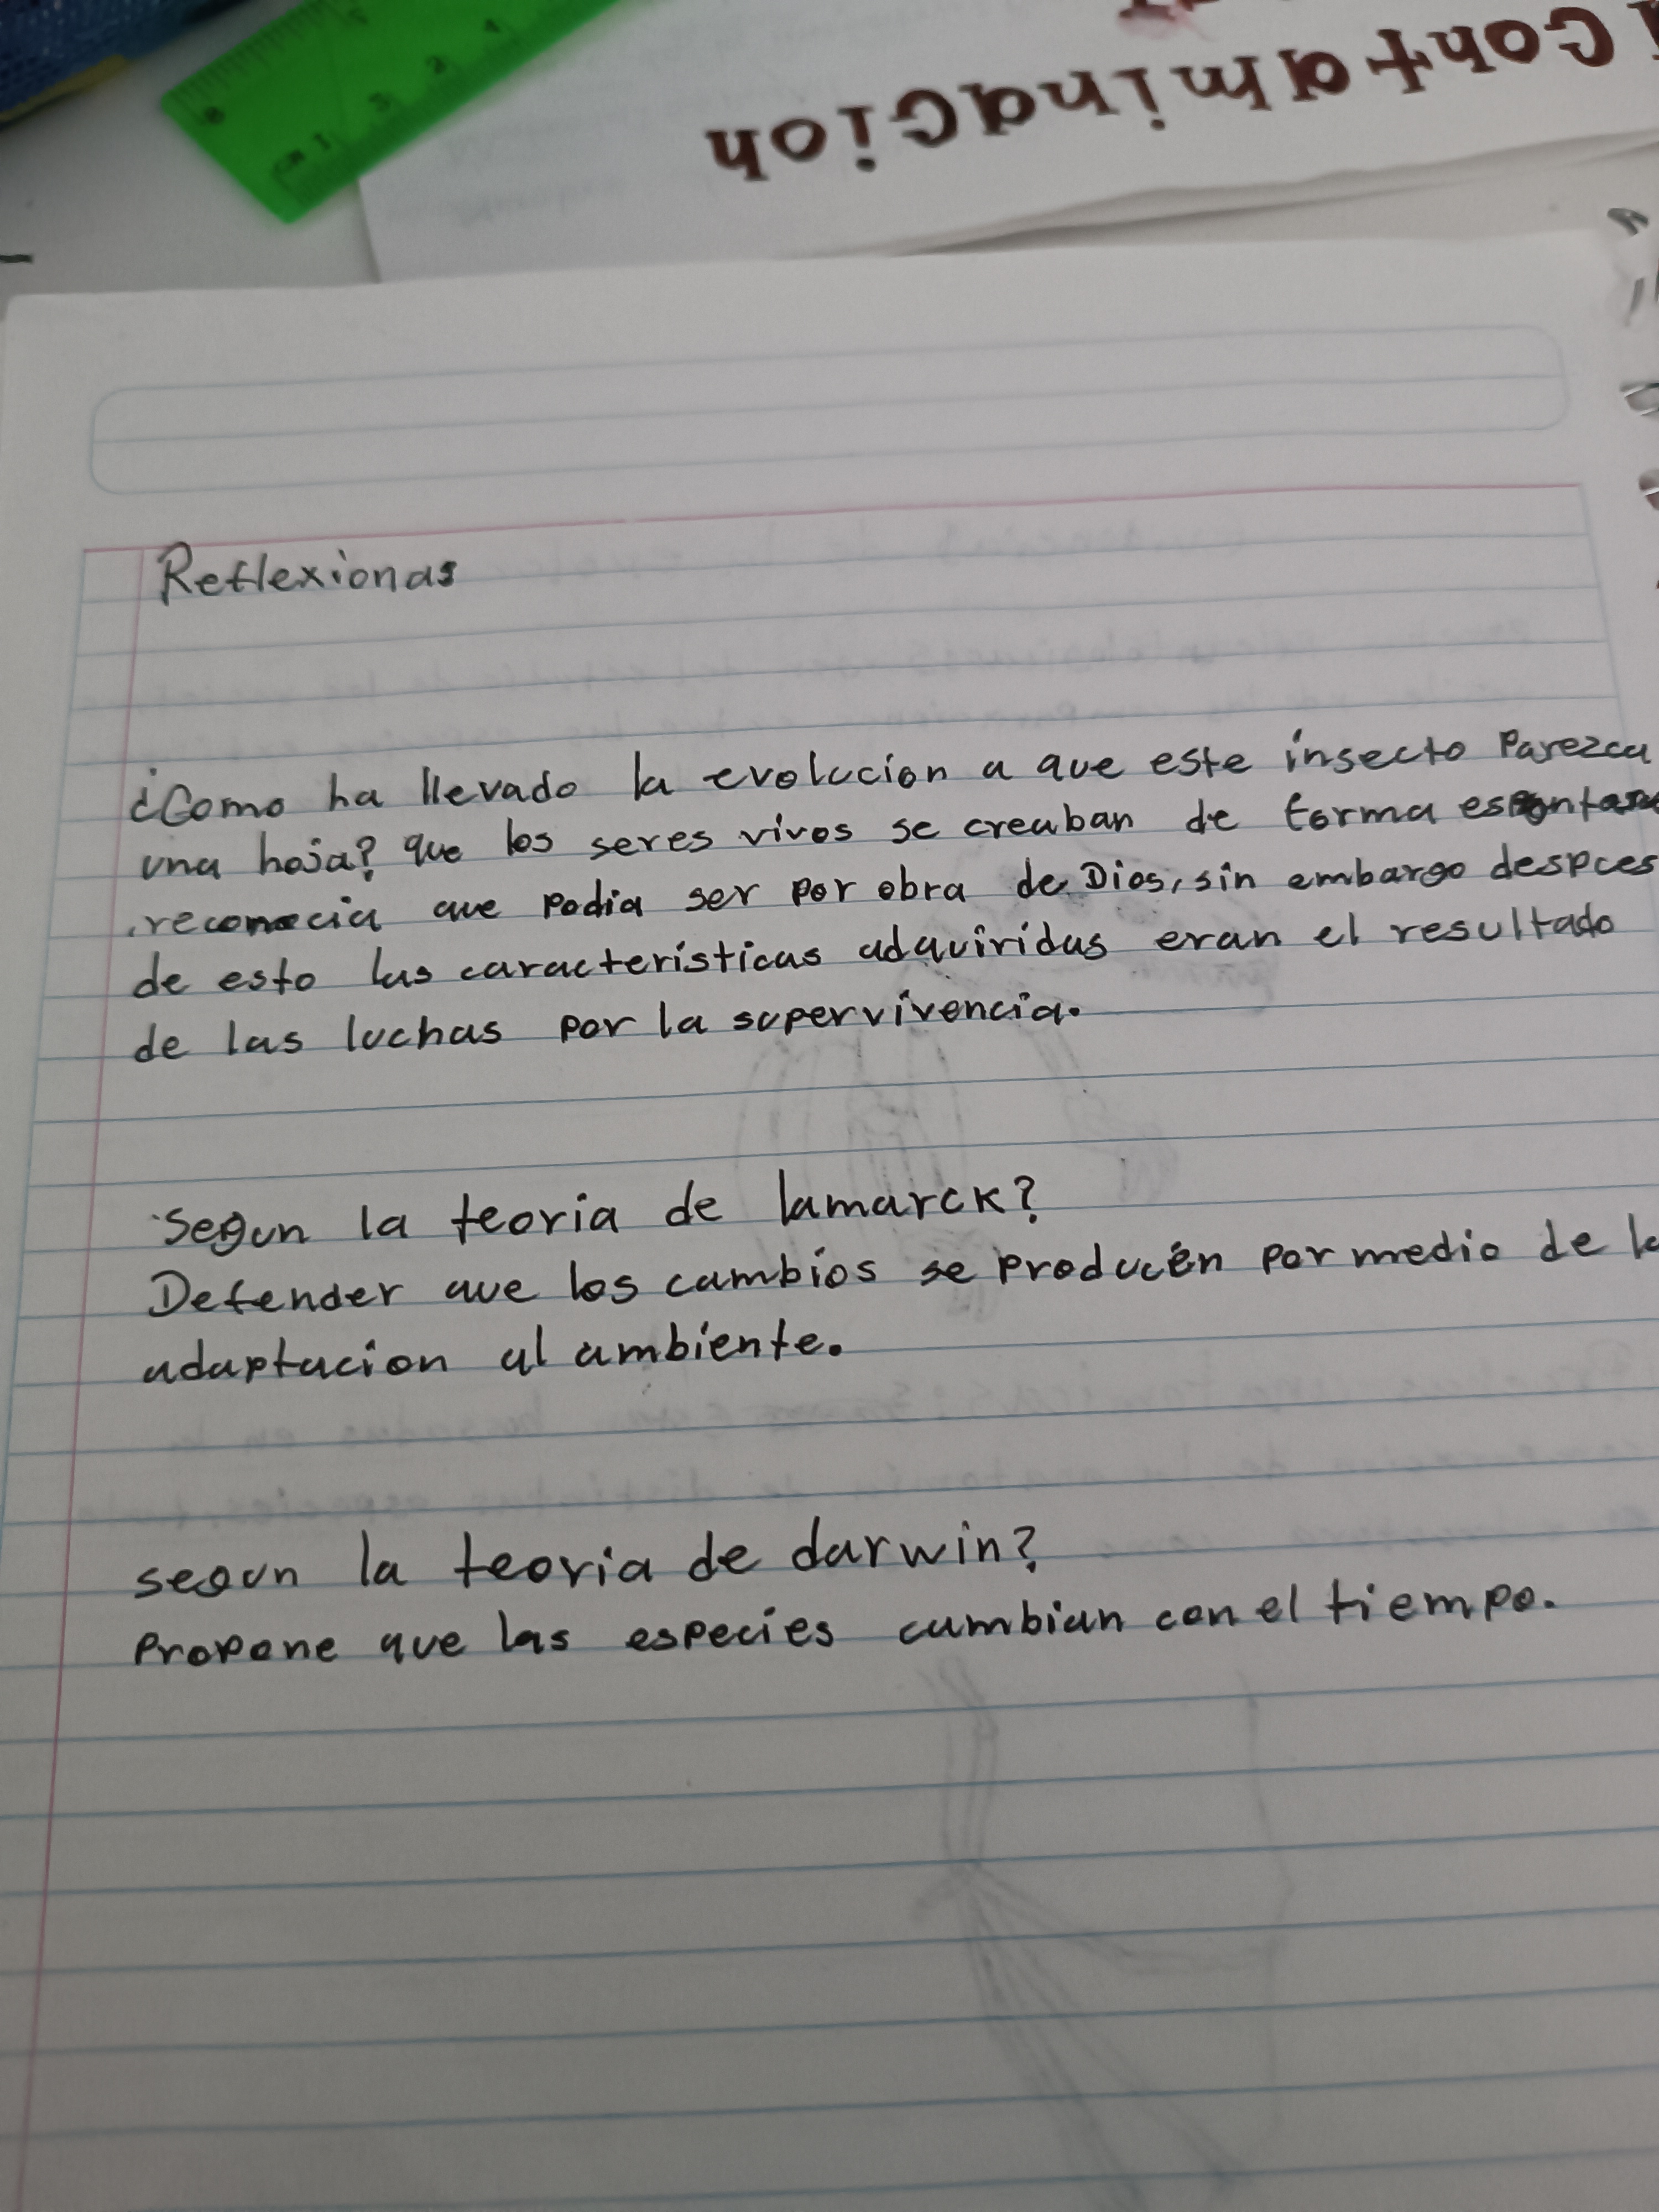 Contaminacion
Reflexionas
¿Como ha llevado la evolucion a que este insecto Parezca
una hoja? que los seres vivos se creaban de forma
reconocia que podia ser por obra de Dios, sin embargo despues
de esto las características adquiridas eran el resultado
de las luchas por la supervivencia.
Segun la teoria de lamarck?
Defender que los cambios se producén por medio de la
adaptacion al ambiente.
segun la teoria de darwin?
Propone que las especies cambian con el tiempo.